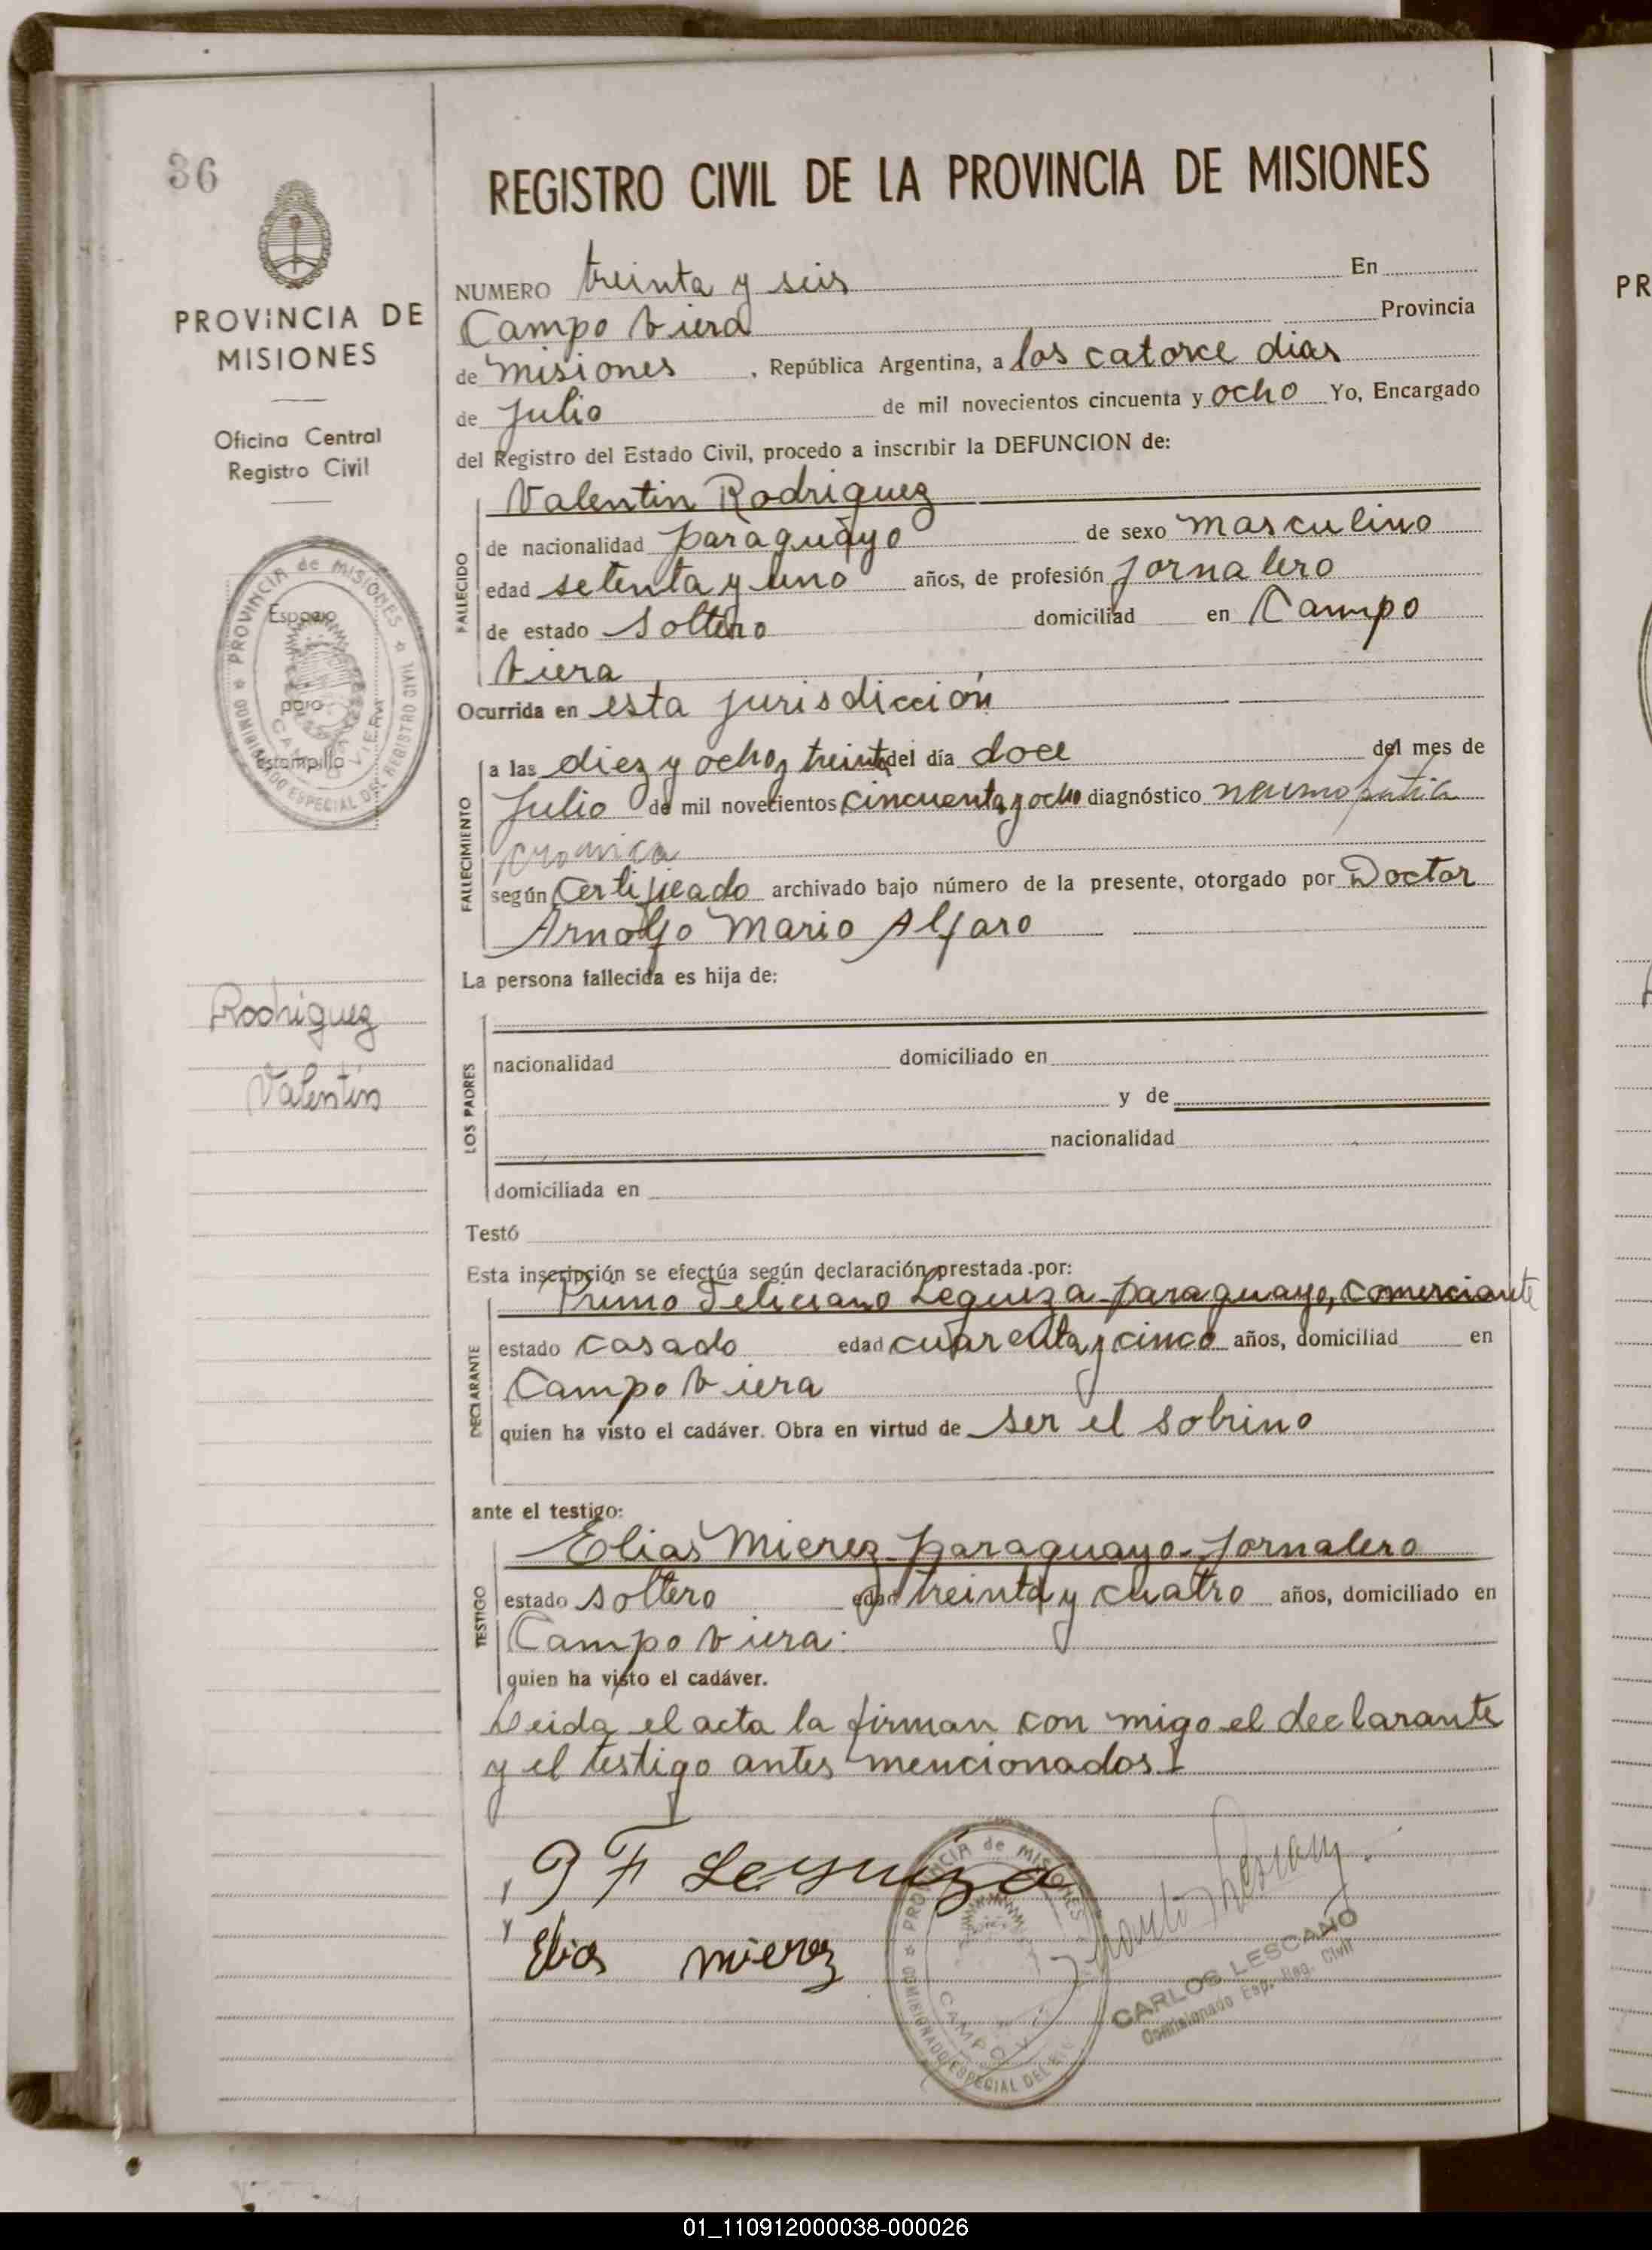 36
PROVINCIA DE
MISIONES
Oficina Central
Registro Civil
PROVINCIA de MISIONES
COMISIONADO ESPECIAL DEL REGISTRO CIVIL
CAMPO VIERA
Espacio
para
estampilla
Rodriguez
Valentin
REGISTRO CIVIL DE LA PROVINCIA DE MISIONES
NUMERO treinta y seis En
Campo Viera Provincia
de Misiones, República Argentina, a los catorce dias
de Julio de mil novecientos cincuenta y ocho Yo, Encargado
del Registro del Estado Civil, procedo a inscribir la DEFUNCION de:
FALLECIDO
Valentin Rodriguez
de nacionalidad paraguayo de sexo masculino
edad setenta y uno años, de profesión Jornalero
de estado Soltero domiciliad en Campo
Viera
Ocurrida en esta jurisdicción
FALLECIMIENTO
a las diez y ocho y treinta del día doce del mes de
Julio de mil novecientos cincuenta y ocho diagnóstico neumopatia
cronica
según Certificado archivado bajo número de la presente, otorgado por Doctor
Arnolfo Mario Alfaro
La persona fallecida es hija de:
LOS PADRES
nacionalidad domiciliado en
y de
nacionalidad
domiciliada en
Testó
Esta inscripción se efectúa según declaración prestada por:
DECLARANTE
Primo Feliciano Leguiza-paraguayo, comerciante
estado casado edad cuarenta y cinco años, domiciliad en
Campo Viera
quien ha visto el cadáver. Obra en virtud de ser el sobrino
ante el testigo:
TESTIGO
Elias Mierez-paraguayo-Jornalero
estado soltero edad treinta y cuatro años, domiciliado en
Campo Viera.
quien ha visto el cadáver.
Leida el acta la firman con migo el declarante
y el testigo antes mencionados
P F Leguiza
Elias mierez
PROVINCIA de MISIONES
COMISIONADO ESPECIAL DEL
CAMPO VI
CARLOS LESCANO
Comisionado Esp. Reg. Civil
PR
01_110912000038-000026